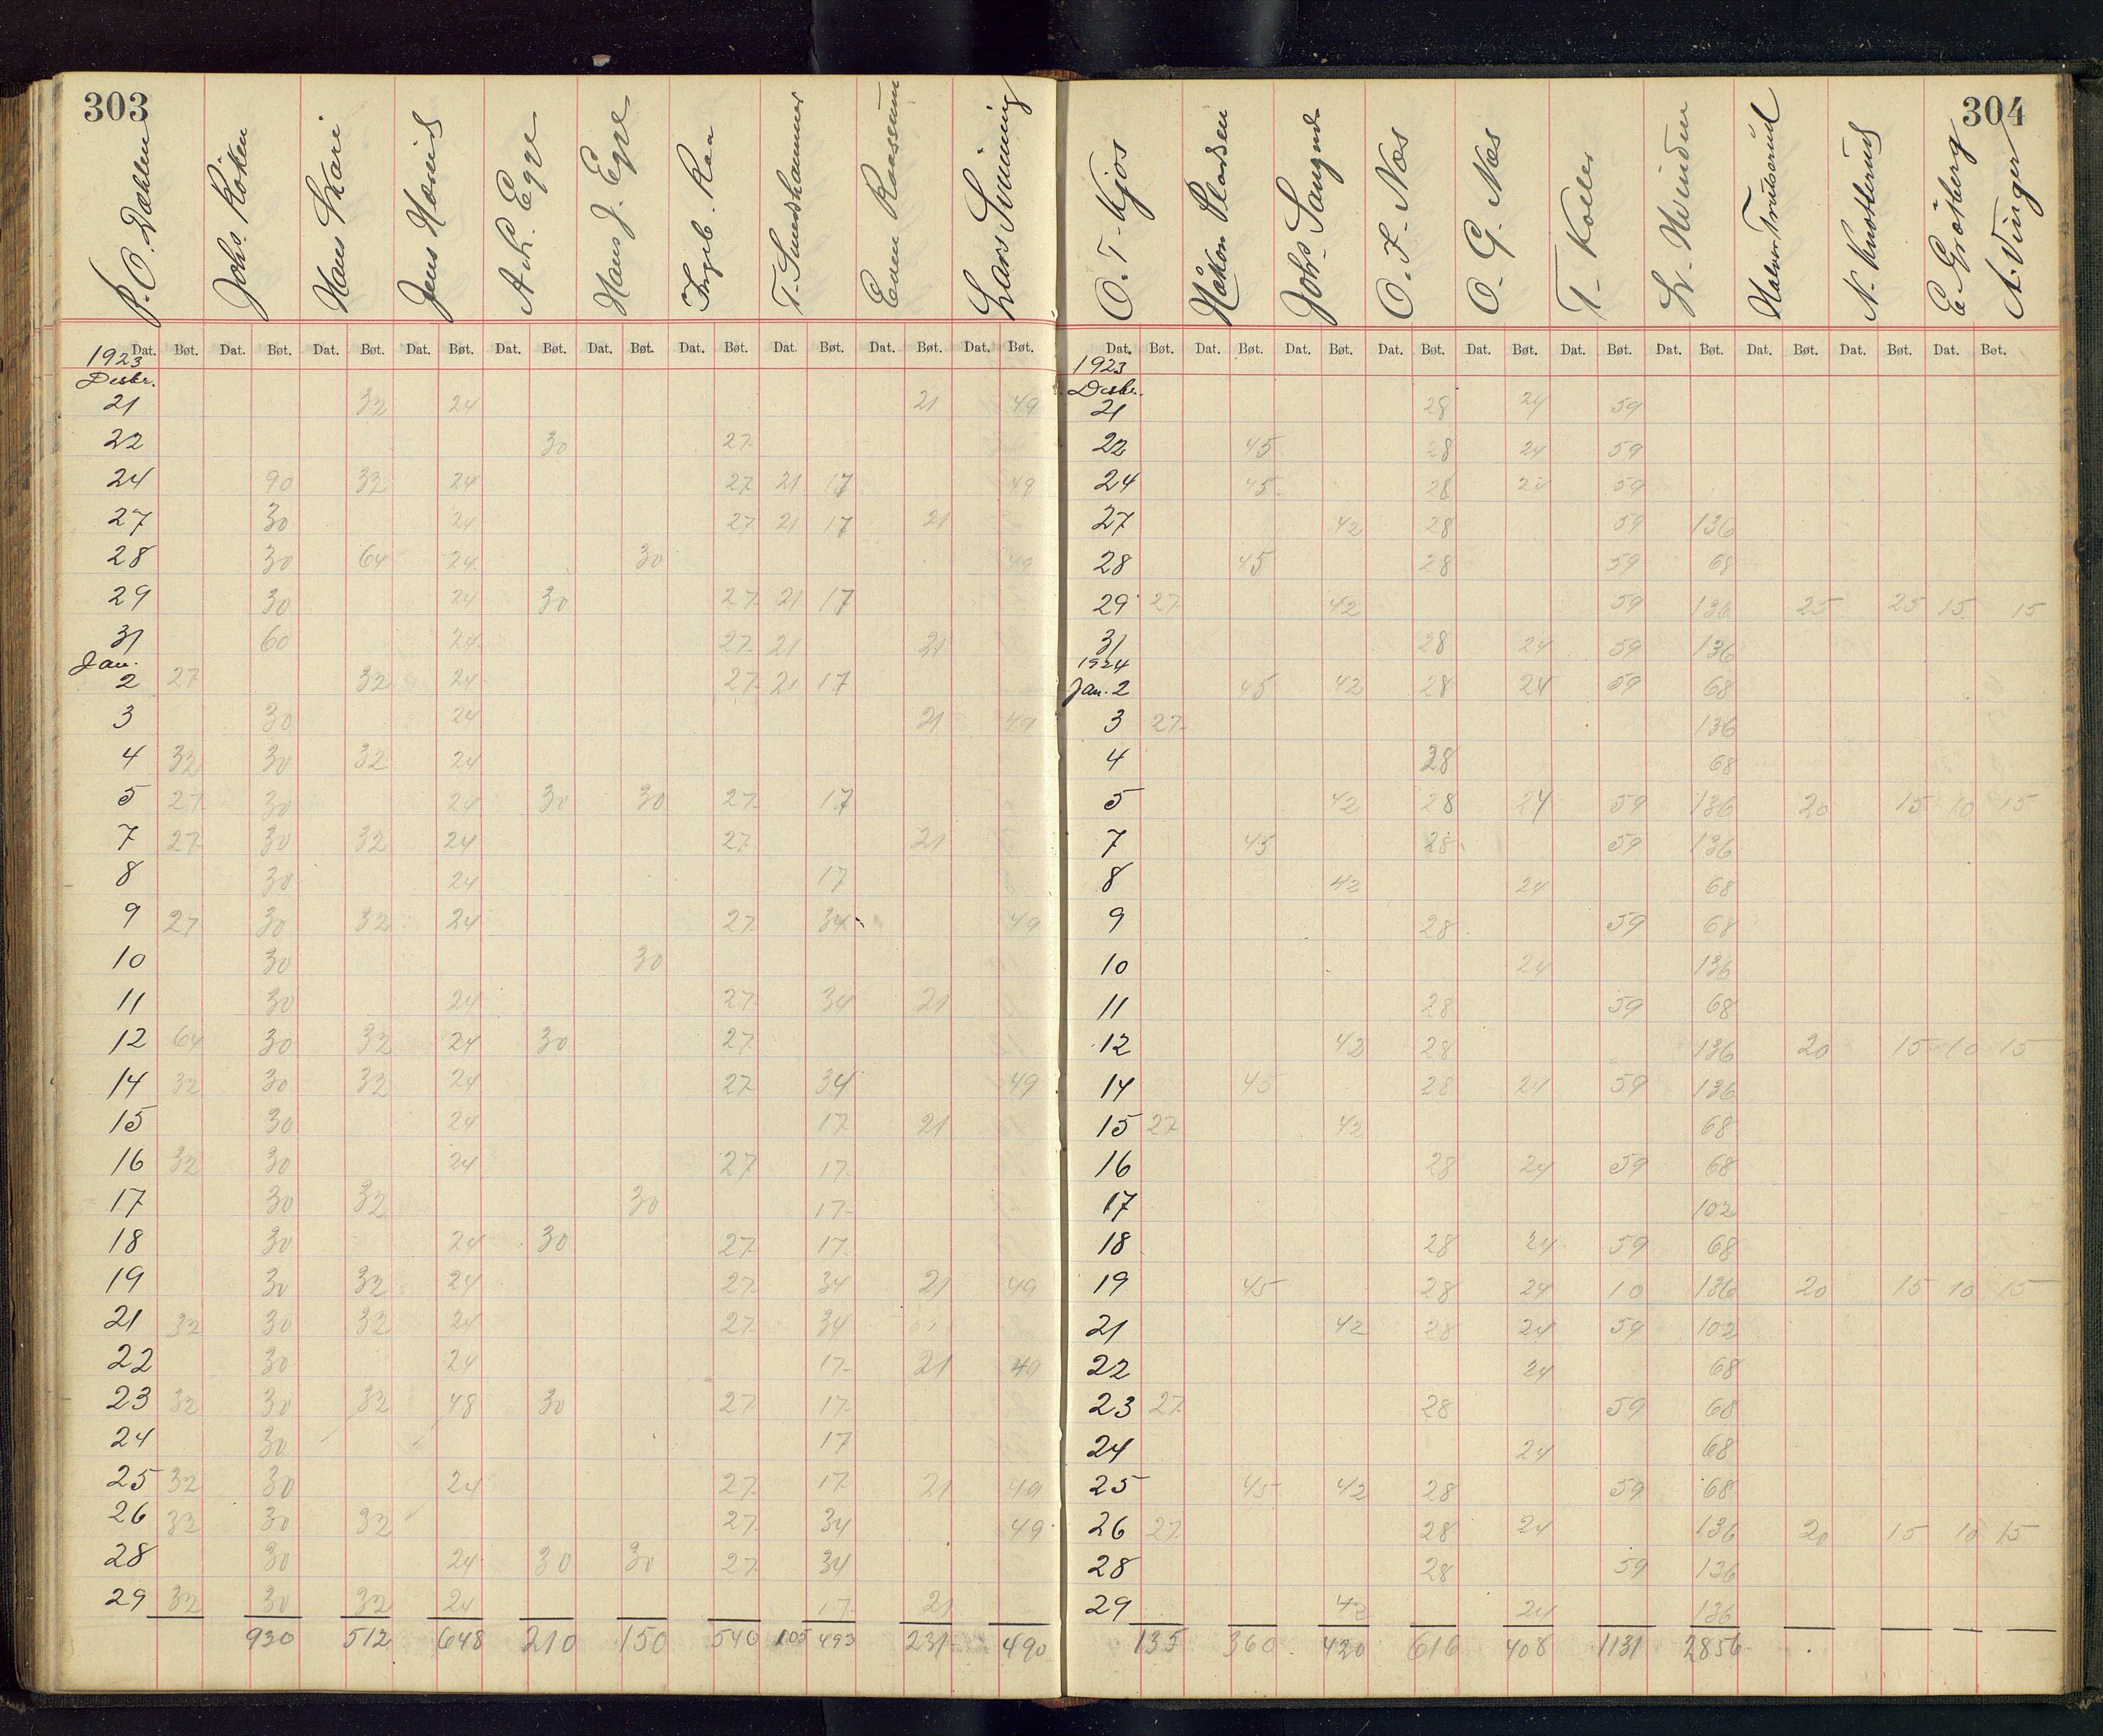 303
P. O. Dæhlen Johs. Røken Hans Skari Jens Horius A. L. Egge Hans J. Egge Ingeb. Raa T. Svendshammer Even Raasum Lars Svinning
Dat. Bøt. Dat. Bøt. Dat. Bøt. Dat. Bøt. Dat. Bøt. Dat. Bøt. Dat. Bøt. Dat. Bøt. Dat. Bøt. Dat. Bøt.
1923
Desbr.
21 32 24 21 49
22 30 27
24 90 32 24 27 21 17 49
27 30 24 27 21 17 21
28 30 64 24 30 49
29 30 24 30 27 21 17
31 60 24 27 21 21
Jan.
2 27 32 24 27 21 17
3 30 24 21 49
4 32 30 32 24
5 27 30 24 30 30 27 17
7 27 30 32 24 27 21
8 30 24 17
9 27 30 32 24 27 34 49
10 30 30
11 30 24 27 34 21
12 64 30 32 24 30 27
14 32 30 32 24 27 34 49
15 30 24 17 21
16 32 30 24 27 17
17 30 32 30 17
18 30 24 30 27 17
19 30 32 24 27 34 21 49
21 32 30 32 24 27 34
22 30 24 17 21 49
23 32 30 32 48 30 27 17
24 30 17
25 32 30 24 27 17 21 49
26 32 30 32 27 34 49
28 30 24 30 30 27 34
29 32 30 32 24 17 21
930 512 648 210 150 540 105 493 231 490
304
O. T. Kjos Håkon Johs. Saugnd O. F. Næs O. G. Næs T. Koller Halvor Trulserud N. Knatterud E. Grøtberg A. Vinger
Dat. Bøt. Dat. Bøt. Dat. Bøt. Dat. Bøt. Dat. Bøt. Dat. Bøt. Dat. Bøt. Dat. Bøt. Dat. Bøt. Dat. Bøt.
1923
Desbr.
21 28 24 59
22 45 28 24 59
24 45 28 24 59
27 42 28 59 136
28 45 28 59 68
29 27 42 59 136 25 25 15 15
31 28 24 59 136
1924
Jan. 2 45 42 28 24 59 68
3 27 136
4 28 68
5 42 28 24 59 136 20 15 10 15
7 45 28 59 136
8 42 24 68
9 28 59 68
10 24 136
11 28 59 68
12 42 28 136 20 15 10 15
14 45 28 24 59 136
15 27 42 68
16 28 24 59 68
17 102
18 28 24 59 68
19 45 28 24 10 136 20 15 10 15
21 42 28 24 59 102
22 24 68
23 27 28 59 68
24 24 68
25 45 42 28 59 68
26 27 28 24 136 20 15 10 15
28 28 59 136
29 42 24 136
135 360 420 616 408 1131 2856